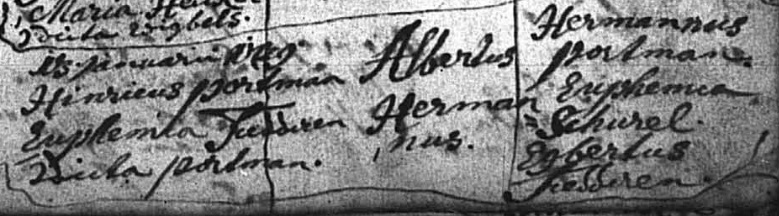 Maria
Dicta Egbels.
13 Januarii
Hinricus portman
Euphemia Fedderen
Dicta portman.
Albertus
Herman
nus.
Hermannus
portman.
Euphemia
Schurel.
Egbertus
Fedderen.